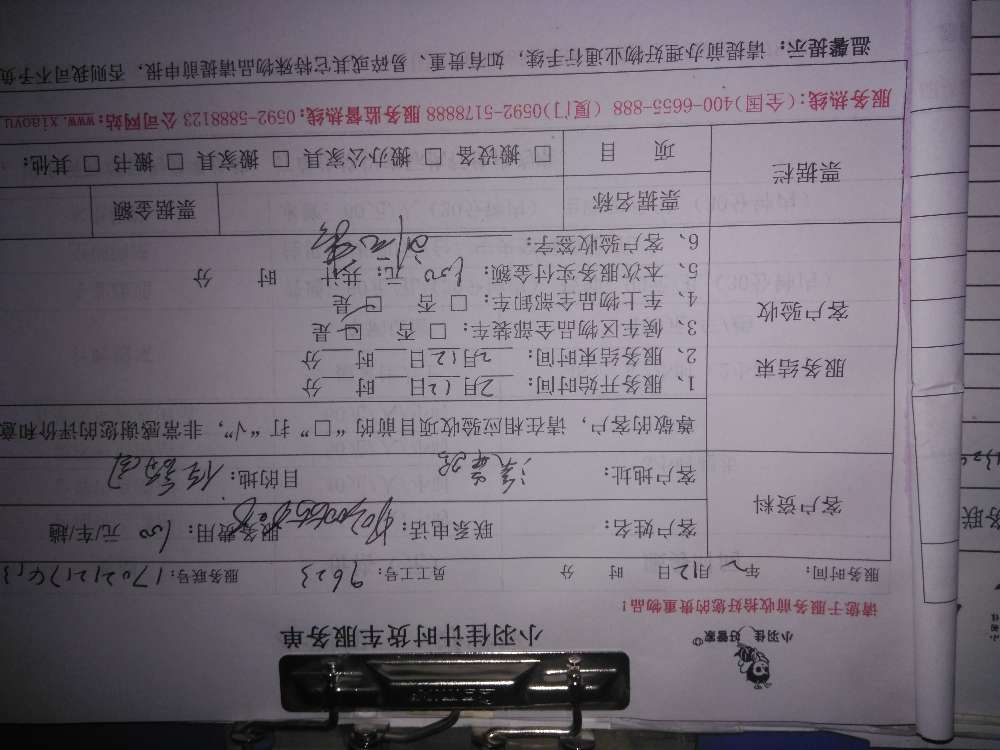 小羽佳 好管家
小羽佳计时货车服务单
请您于服务前收拾好您的贵重物品！
服务时间： 年 2月12日 时 分 员工工号：9623 服务联号：
客户资料
客户姓名： 联系电话： 服务费用：100 元/车/趟
客户地址： 目的地：
尊敬的客户，请在相应验收项目前的“□”打“√”，非常感谢您的评价和意
服务结束
客户验收
1、服务开始时间：2月12日 时 分
2、服务结束时间：2月12日 时 分
3、候车区物品全部装车：□ 否 □ 是
4、车上物品全部卸车：□ 否 □ 是
5、本次服务实付金额：100 元；共计 时 分
6、客户验收签字：
票据栏
票据名称 票据金额
项 目 □ 搬设备 □ 搬办公家具 □ 搬家具 □ 搬书 □ 其他：
服务热线：(全国)400-6655-888 (厦门)0592-5178888 服务监督热线：0592-5888123 公司网站：www.xiaoyu
温馨提示：请提前办理好物业通行手续，如有贵重、易碎或其它特殊物品请提前申报，否则我司不予负